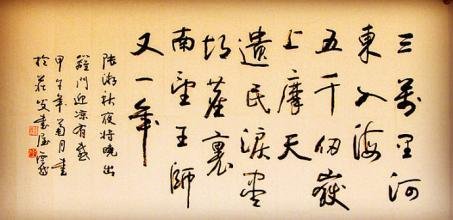 三萬里河
東入海
五千仞嶽
上摩天
遺民淚盡
胡塵裏
南望王師
又一年
陸游秋夜將曉出
籬門迎涼有感
甲午年菊月書
於書屋